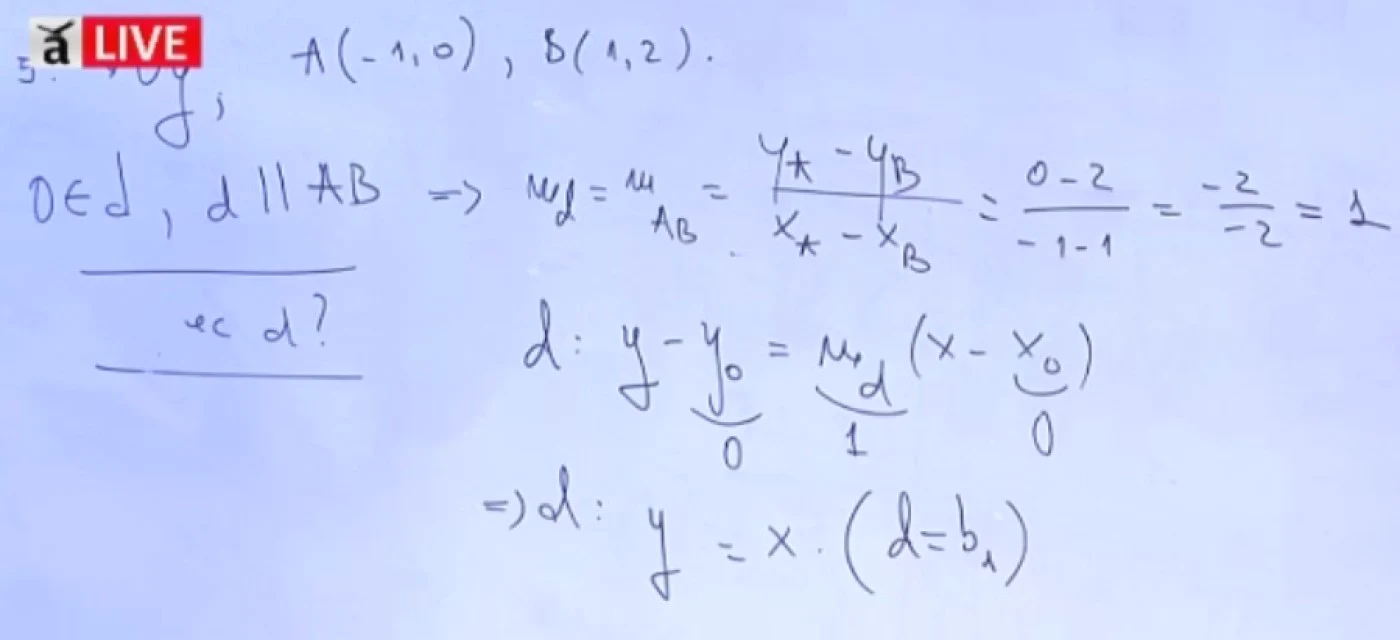 ă LIVE
5. xOy, A(-1,0), B(1,2).
O∈d, d || AB => m_d = m_AB = (y_A - y_B)/(x_A - x_B) = (0-2)/(-1-1) = -2/-2 = 1
ec d?
d: y - y_0 = m_d (x - x_0)
0 1 0
=> d: y = x. (d = b_1)